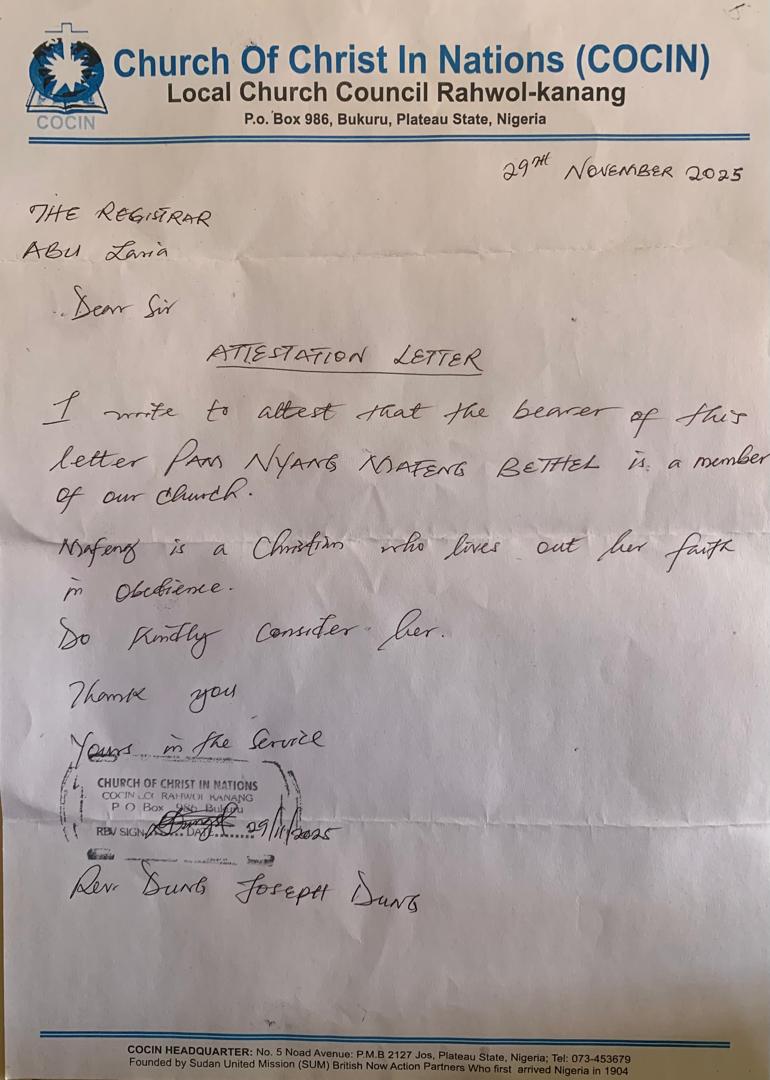 Church Of Christ In Nations (COCIN)
Local Church Council Rahwol-kanang
P.o. Box 986, Bukuru, Plateau State, Nigeria
COCIN
29TH NOVEMBER 2025
THE REGISTRAR
ABU Zaria
Dear Sir
ATTESTATION LETTER
I write to attest that the bearer of this
letter PAM NYANG MAFENG BETHEL is a member
of our church.
Mafeng is a Christian who lives out her faith
in Obedience.
Do Kindly Consider her.
Thank you
Yours in the Service
CHURCH OF CHRIST IN NATIONS
COCIN LCC RAHWOL KANANG
P O Box 986 Bukuru
REV SIGN DATE 29/11/2025
Rev. DUNG JOSEPH DUNG
COCIN HEADQUARTER: No. 5 Noad Avenue: P.M.B 2127 Jos, Plateau State, Nigeria; Tel: 073-453679
Founded by Sudan United Mission (SUM) British Now Action Partners Who first arrived Nigeria in 1904